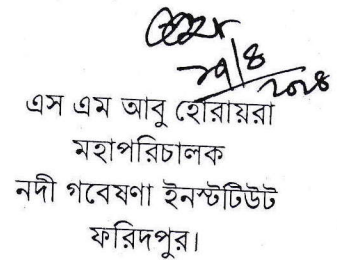 এস এম আবু হোরায়রা
মহাপরিচালক
নদী গবেষণা ইনস্টটিউট
ফরিদপুর।